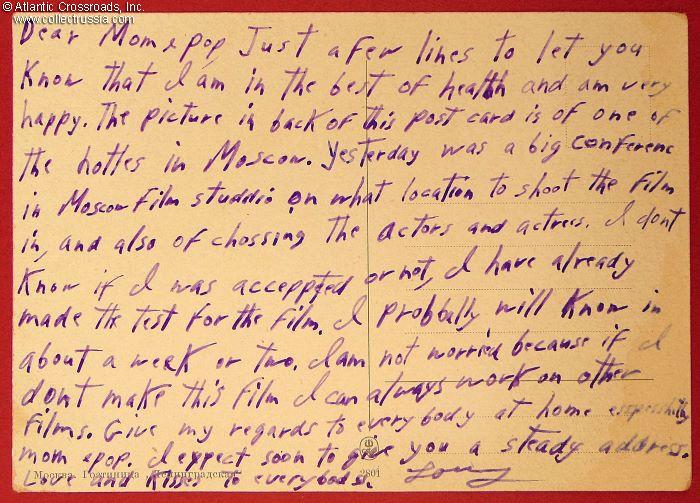 © Atlantic Crossroads, Inc.
www.collectrussia.com
Dear Mom & pop Just a few lines to let you
Know that I am in the best of health and am very
happy. The picture in back of this post card is of one of
the hottles in Moscow. Yesterday was a big conferenc
in Moscow Film studdio on what location to shoot the Film
in, and also of chossing the actors and actress. I dont
Know if I was acceppted or not, I have already
made the test for the film. I probbally will Know in
about a week or two. I am not worried because if I
dont make this film I can always work on other
films. Give my regards to everybody at home
mom & pop. I expect soon to give you a steady address.
Love and Kisses to everybody.
Москва. Гостиница „Ленинградская“ 2801